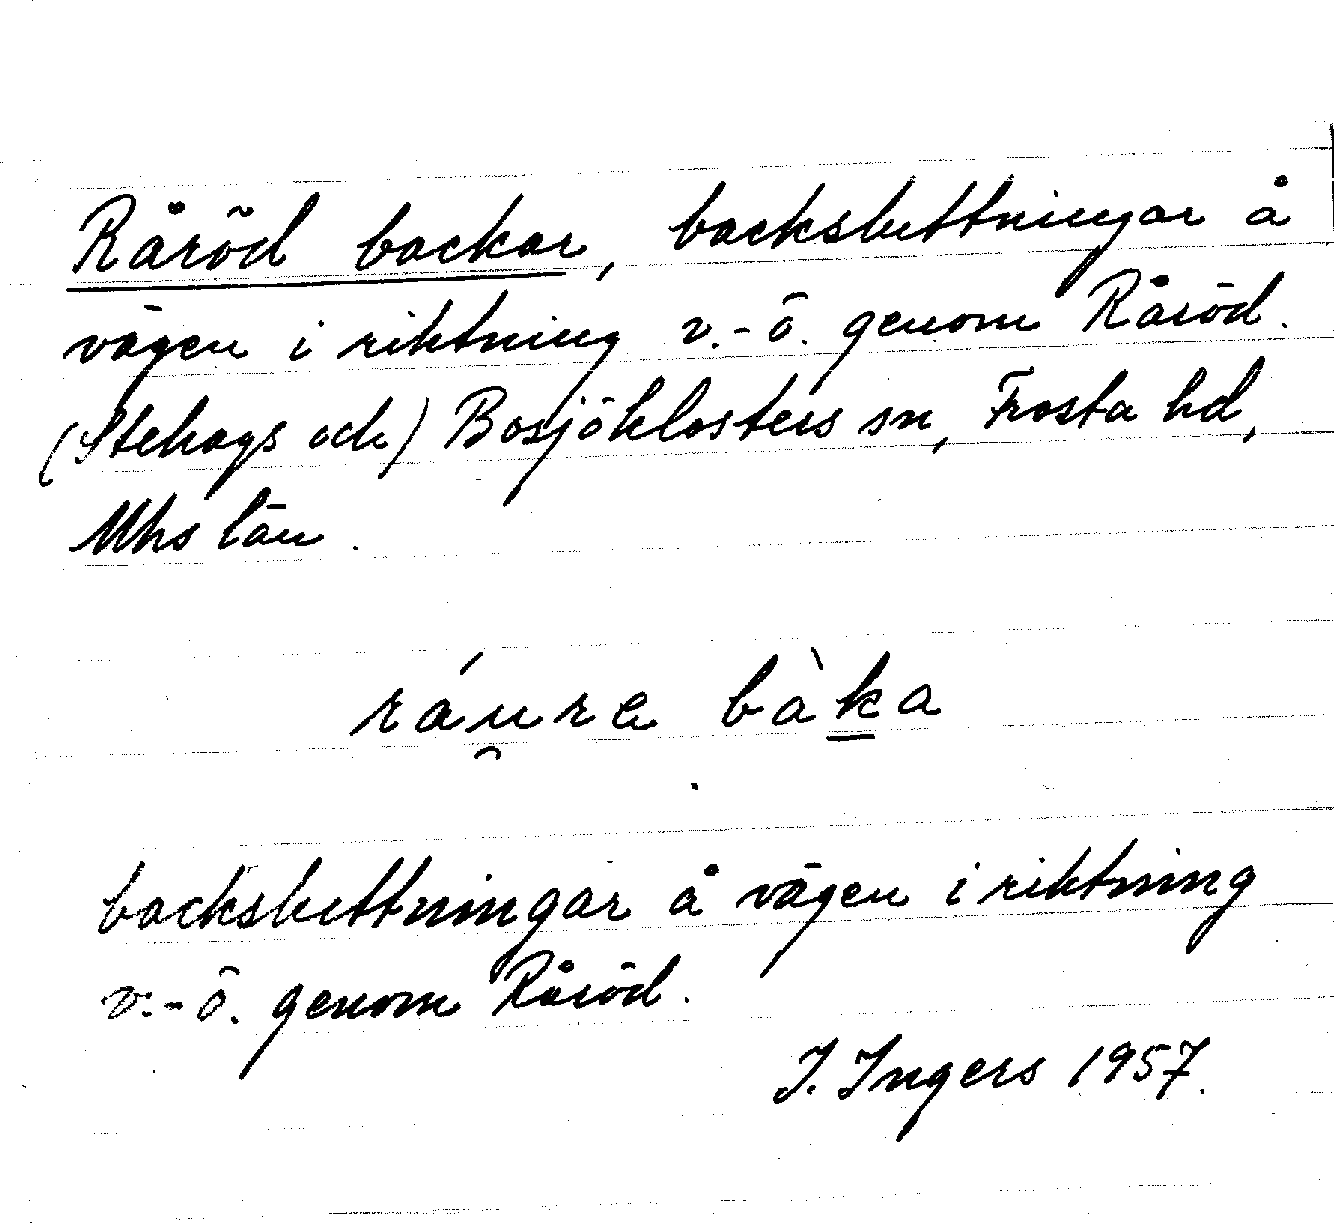 Råröd backar, backsluttningar å
vägen i riktning v.-ö. genom Råröd.
(Stehags och) Bosjöklosters sn, Frosta hd,
Mhs län.
ráu̯re bàka
backsluttningar å vägen i riktning
v.-ö. genom Råröd.
I. Ingers 1957.